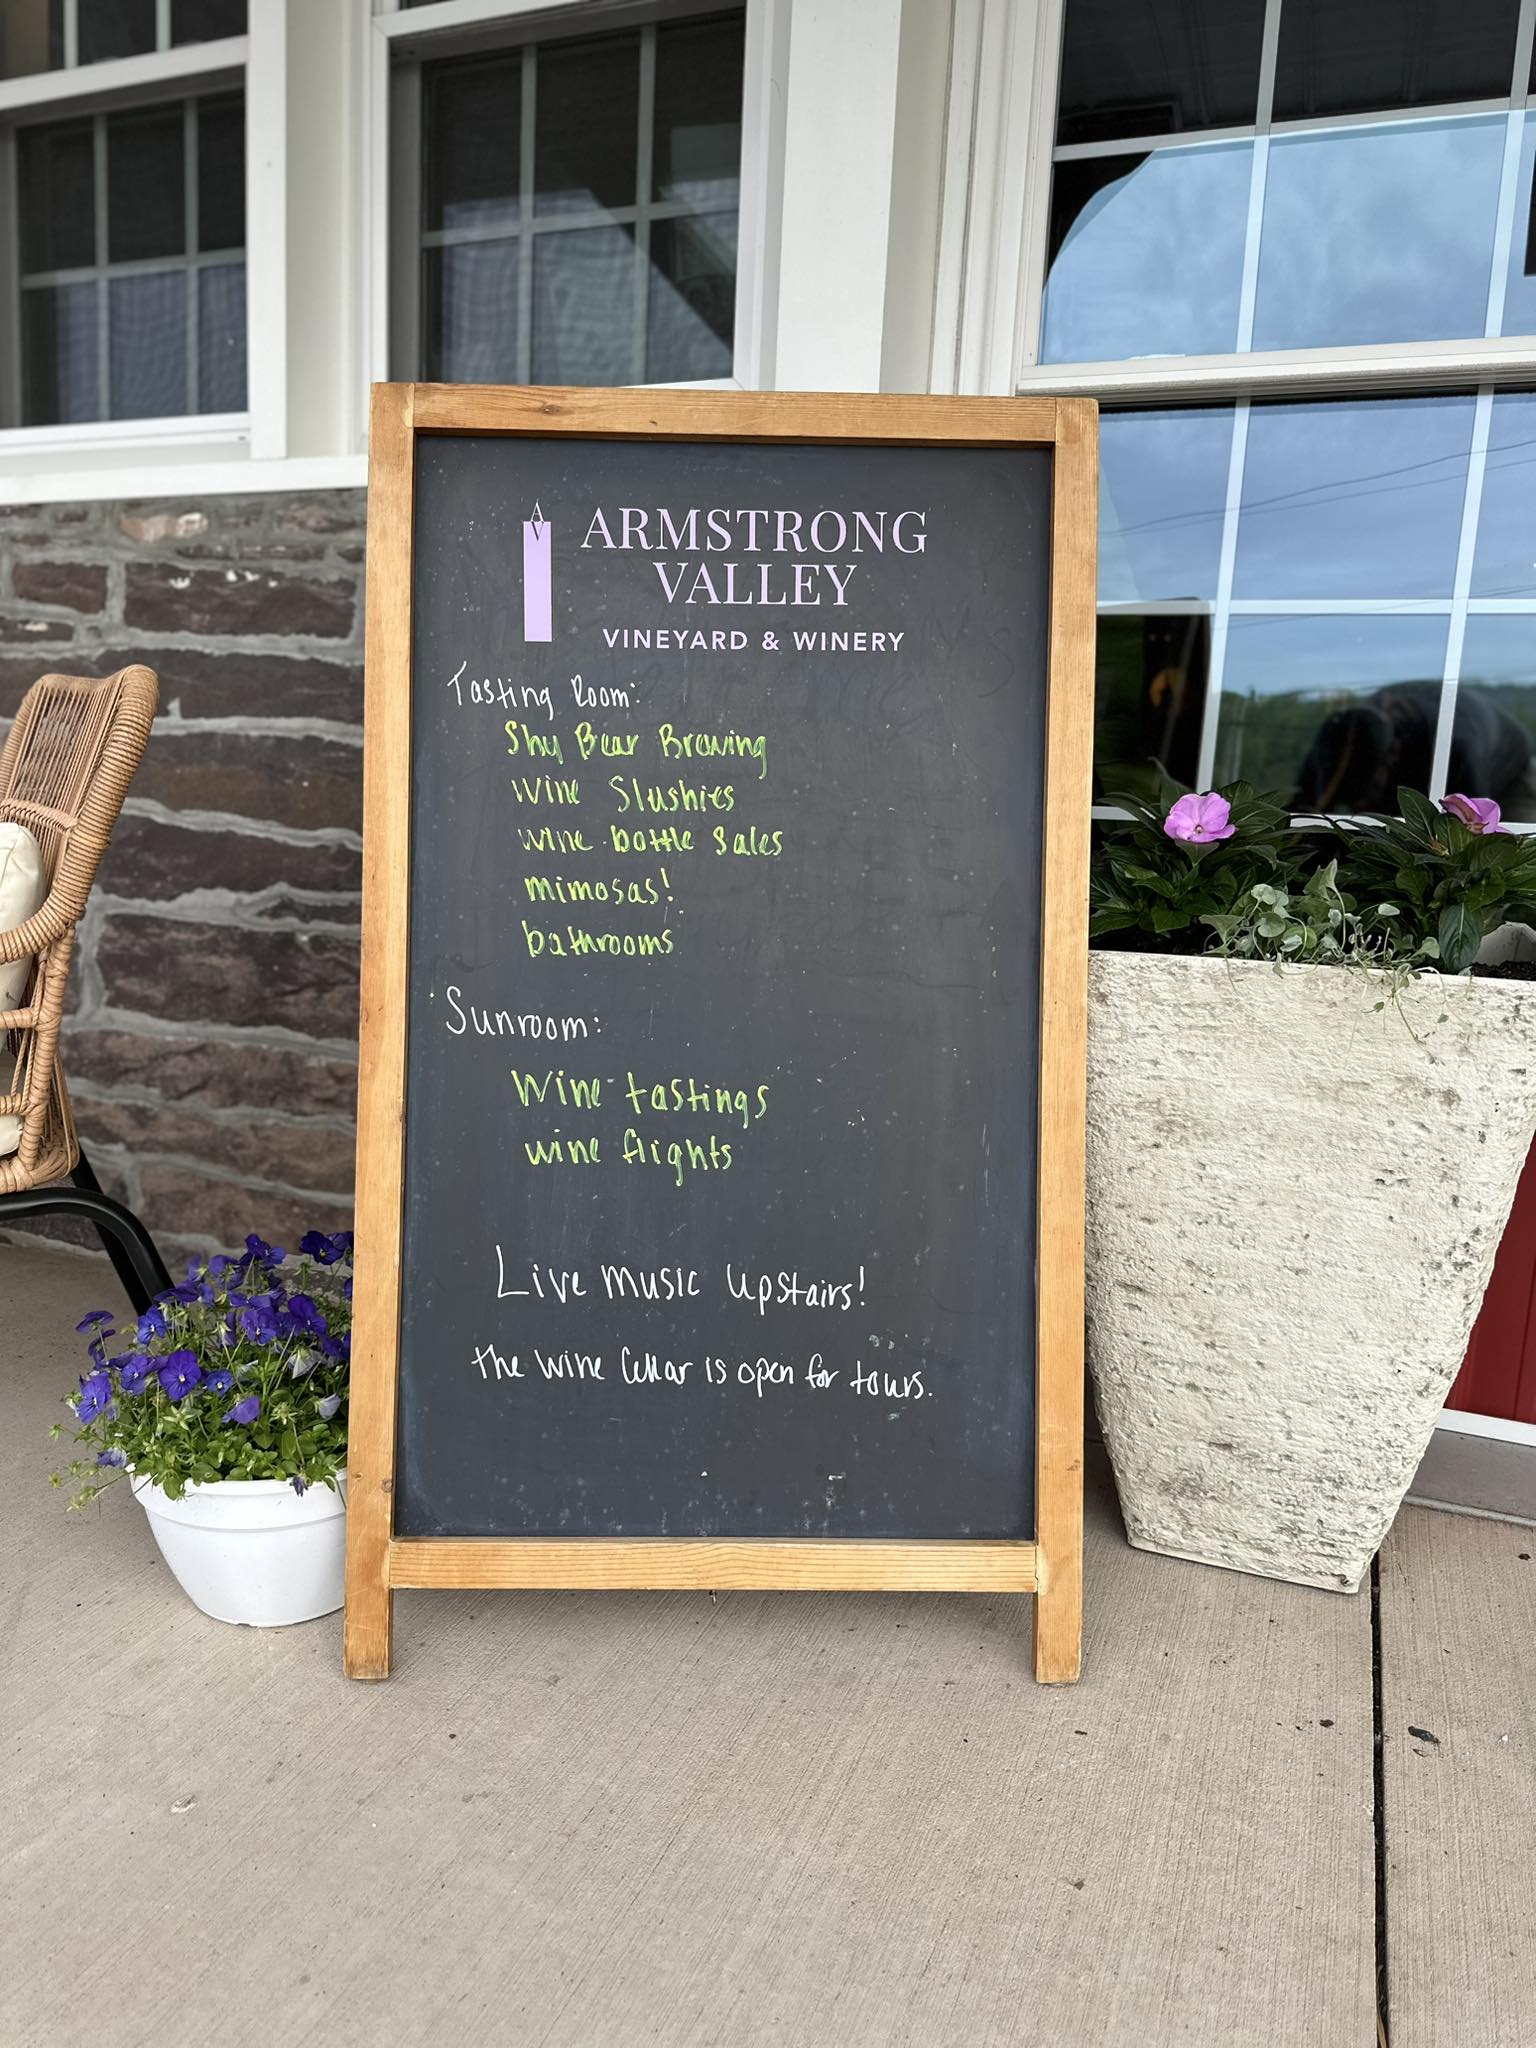 AV
ARMSTRONG
VALLEY
VINEYARD & WINERY
Tasting Room:
Shy Bear Brewing
Wine Slushies
wine bottle sales
mimosas!
bathrooms
Sunroom:
Wine tastings
wine flights
Live music upstairs!
the wine cellar is open for tours.